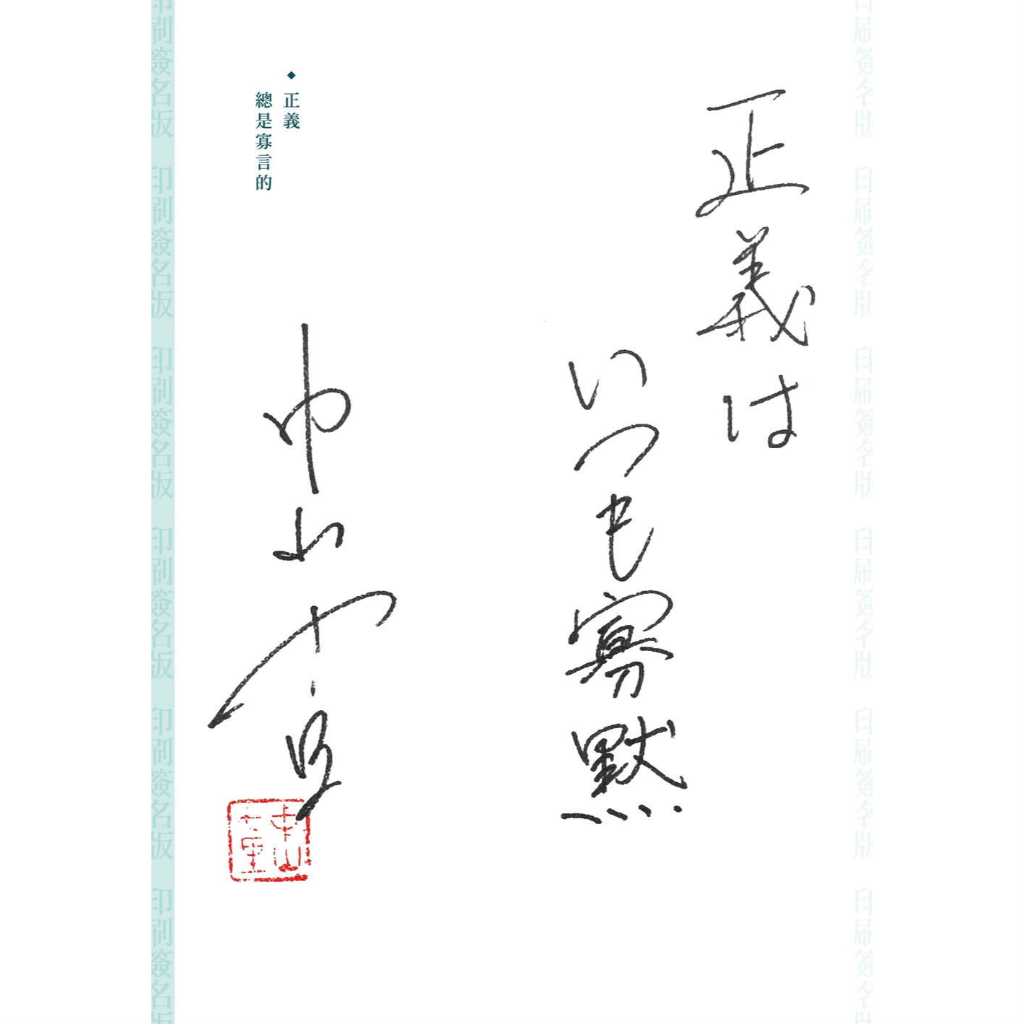 印刷簽名版 印刷簽名版 印刷簽名版 印刷簽名版 印刷簽名版 印刷簽名版
正義は
いつも寡黙
正義
總是寡言的
中山七里
印刷簽名版 印刷簽名版 印刷簽名版 印刷簽名版 印刷簽名版 印刷簽名版